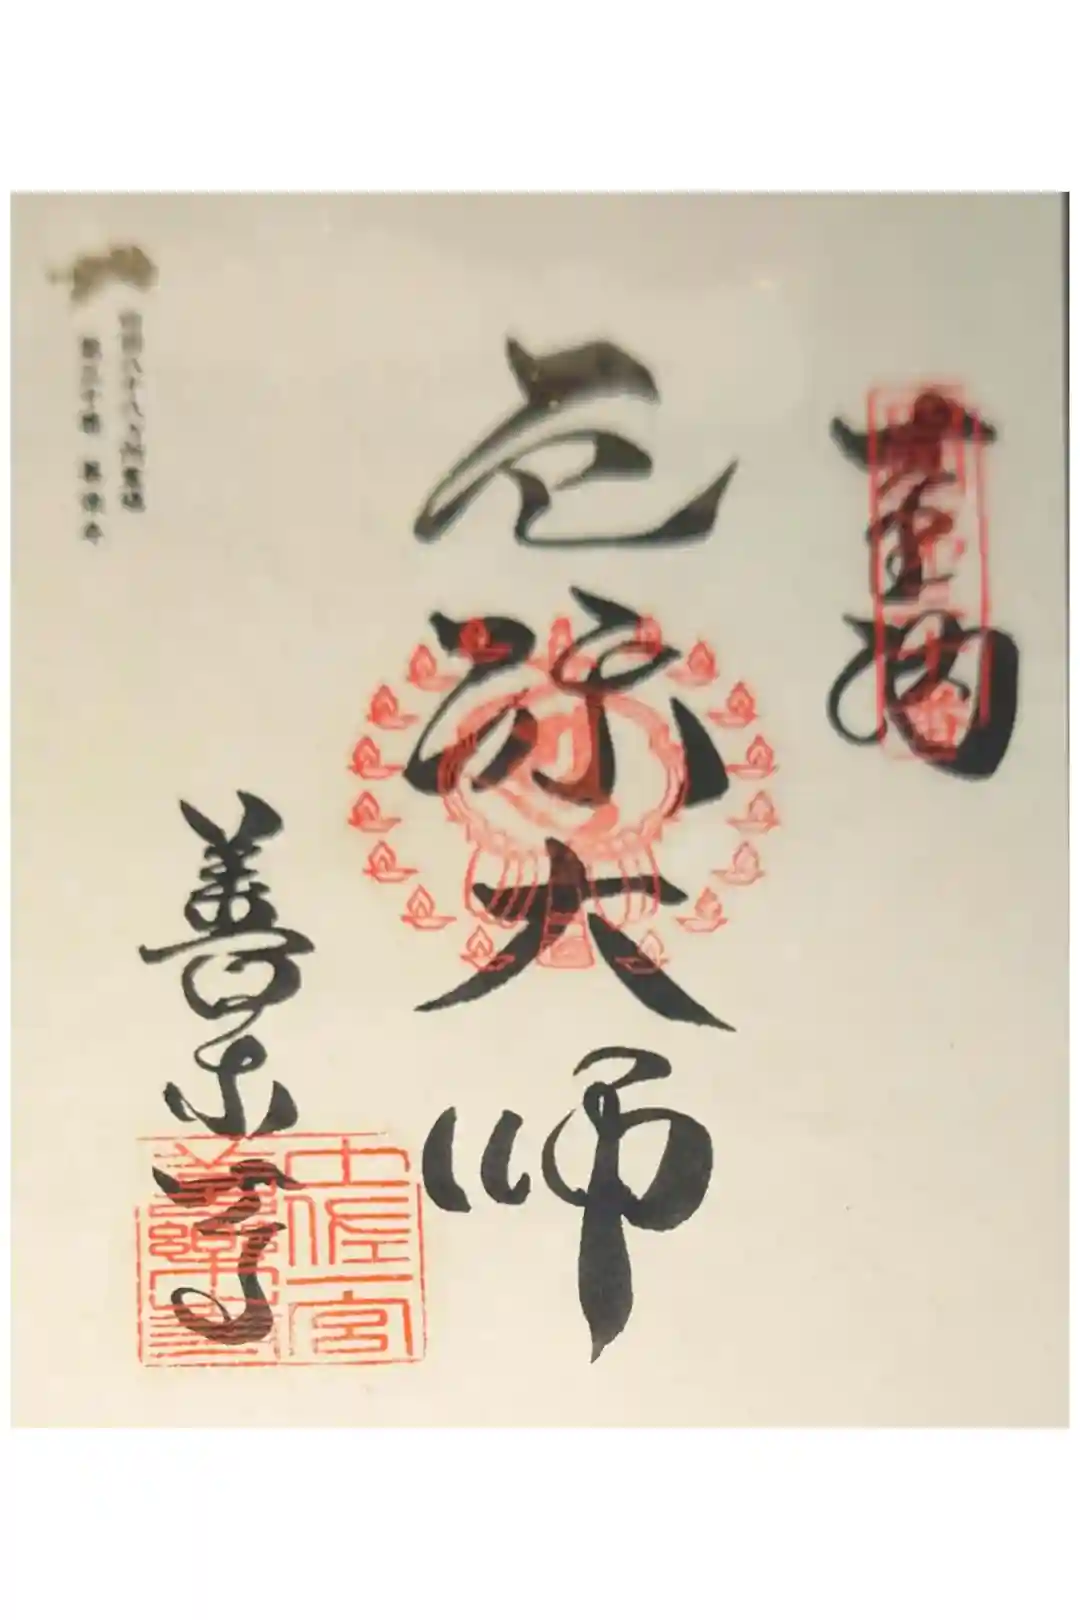 奉納
厄除大師
善楽寺
土佐一宮
善楽寺
四国八十八ヶ所霊場
第三十番 善楽寺